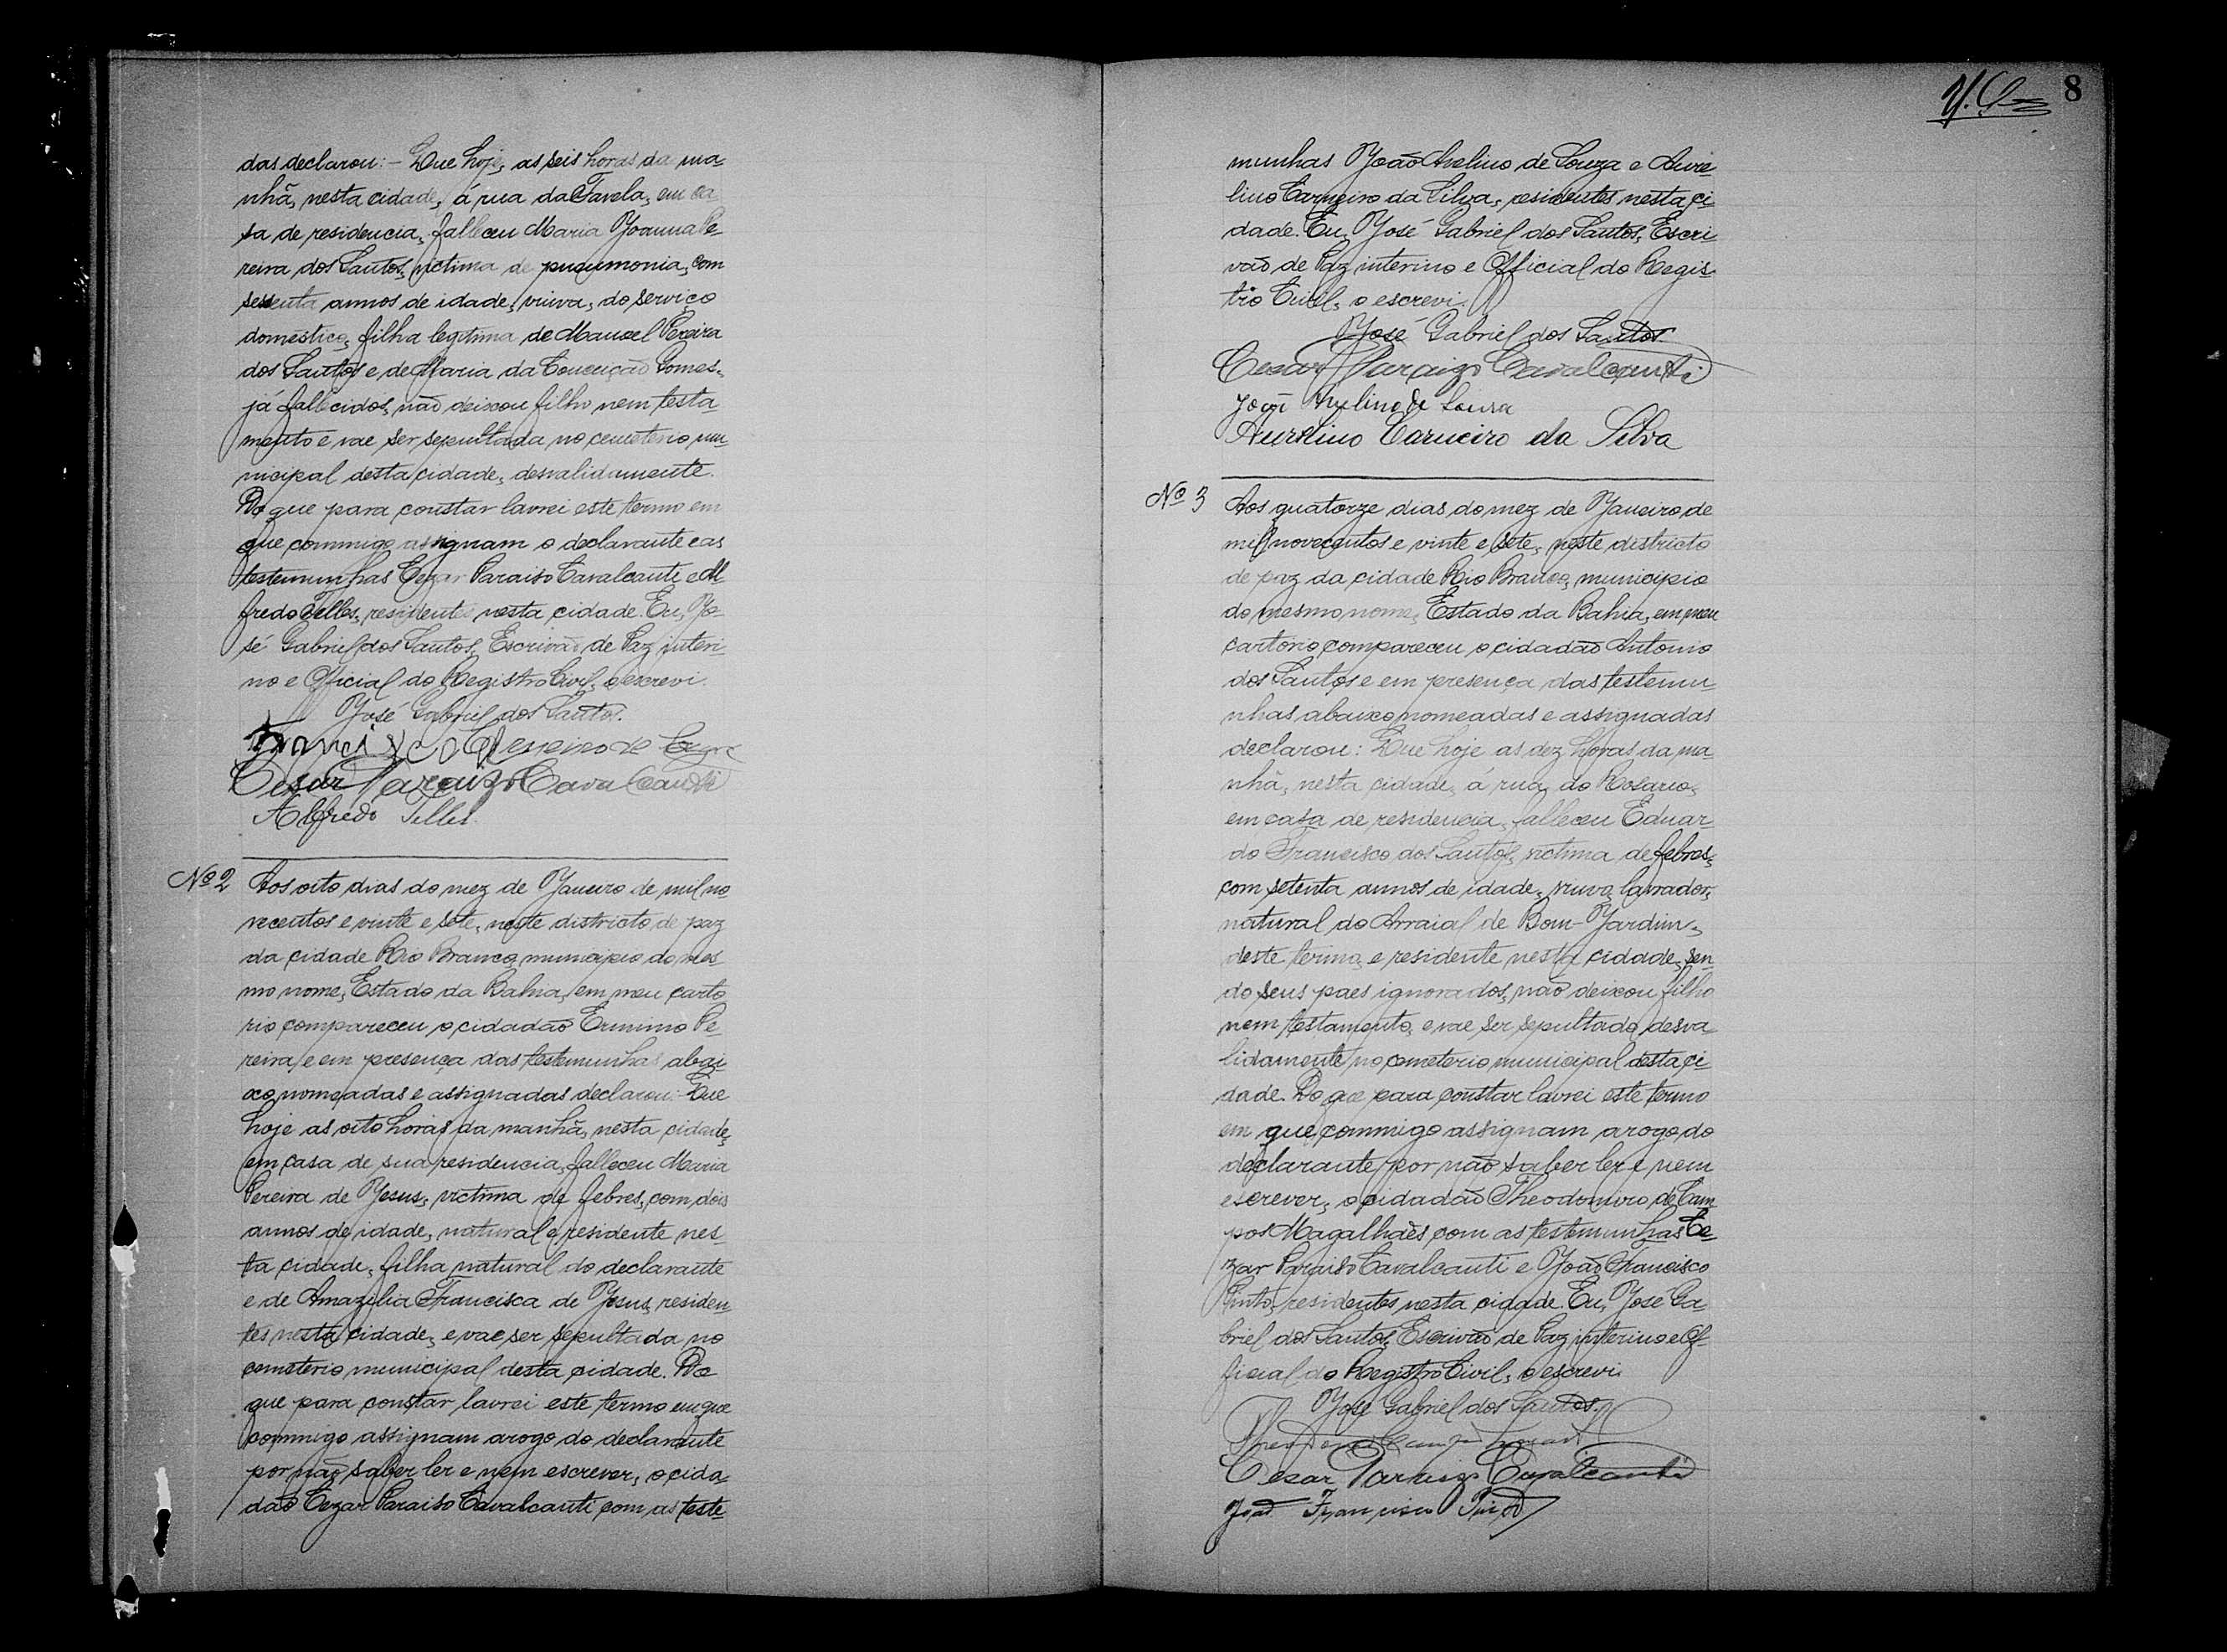 das declarou: - Que hoje, as seis horas da ma-
nhã, nesta cidade, á rua da Favela, em ca-
sa de residencia, falleceu Maria Joanna Pe-
reira dos Santos, victima de pneumonia, com
sessenta annos de idade, viuva, do serviço
domestico, filha legitima de Manoel Pereira
dos Santos e de Maria da Conceição Gomes,
já fallecidos, não deixou filho nem testa-
mento e vae ser sepultada no cemeterio mu-
nicipal desta cidade, desvalidamente.
Do que para constar lavrei este termo em
que commigo assignam o declarante e as
testemunhas Cezar Paraiso Cavalcanti e Al-
fredo Telles, residentes nesta cidade. Eu, Jo-
sé Gabriel dos Santos, Escrivão de Paz interi-
no e Official do Registro Civil, o escrevi.
José Gabriel dos Santos.
Francisco de
Cesar Paraizo Cavalcanti
Alfredo Telles
Nº 2 Aos oito dias do mez de Janeiro de mil no-
vecentos e vinte e sete, neste districto de paz
da cidade Rio Branco, municipio do mes-
mo nome, Estado da Bahia, em meu carto-
rio compareceu o cidadão Erminio Pe-
reira, e em presença das testemunhas abai-
xo nomeadas e assignadas declarou: Que
hoje as oito horas da manhã, nesta cidade,
em casa de sua residencia, falleceu Maria
Pereira de Jesus, victima de febres, com dois
annos de idade, natural e residente nes-
ta cidade, filha natural do declarante
e de Amazilia Francisca de Jesus, residen-
tes nesta cidade, e vae ser sepultada no
cemeterio municipal desta cidade. Do
que para constar lavrei este termo em que
commigo assignam arogo do declarante
por não saber ler e nem escrever, o cida-
dão Cezar Paraiso Cavalcanti com as teste-
8
munhas João Avelino de Souza e Aure-
lino Carneiro da Silva, residentes nesta ci-
dade. Eu, José Gabriel dos Santos, Escri-
vão de Paz interino e Official do Regis-
tro Civil, o escrevi.
José Gabriel dos Santos.
Cesar Paraizo Cavalcanti
João Avelino de Sousa
Aurelino Carneiro da Silva
Nº 3 Aos quatorze dias do mez de Janeiro de
mil novecentos e vinte e sete, neste districto
de paz da cidade Rio Branco, municipio
do mesmo nome, Estado da Bahia, em meu
cartorio compareceu o cidadão Antonio
dos Santos e em presença das testemu-
nhas abaixo nomeadas e assignadas
declarou: Que hoje as dez horas da ma-
nhã, nesta cidade, á rua do Rosario,
em casa de residencia, falleceu Eduar-
do Francisco dos Santos, victima de febres,
com setenta annos de idade, viuvo, lavrador,
natural do Arraial de Bom-Jardim,
deste termo, e residente nesta cidade, sen-
do seus paes ignorados, não deixou filho
nem testamento, e vae ser sepultado desva-
lidamente no cemeterio municipal desta ci-
dade. Do que para constar lavrei este termo
em que commigo assignam arogo do
declarante por não saber ler e nem
escrever, o cidadão Theodomiro de Cam-
pos Magalhães com as testemunhas Ce-
zar Paraiso Cavalcanti e João Francisco
Pinto, residentes nesta cidade. Eu, José Ga-
briel dos Santos, Escrivão de Paz interino e Of-
ficial do Registro Civil, o escrevi.
José Gabriel dos Santos.
Cesar Paraizo Cavalcanti
João Francisco Pinto